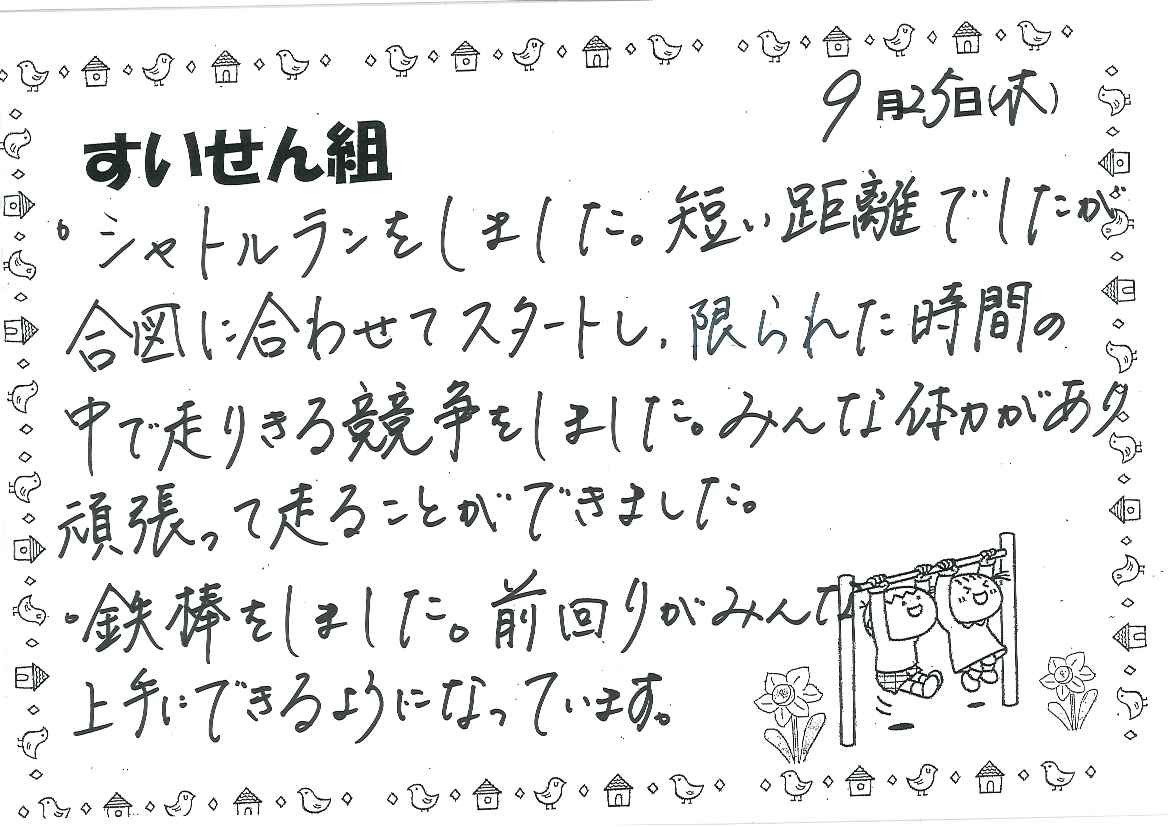 9月25日(水)
すいせん組
。シャトルランをしました。短い距離でしたが
合図に合わせてスタートし、限られた時間の
中で走りきる競争をしました。みんな体力があり
頑張って走ることができました。
。鉄棒をしました。前回りがみんな
上手にできるようになっています。